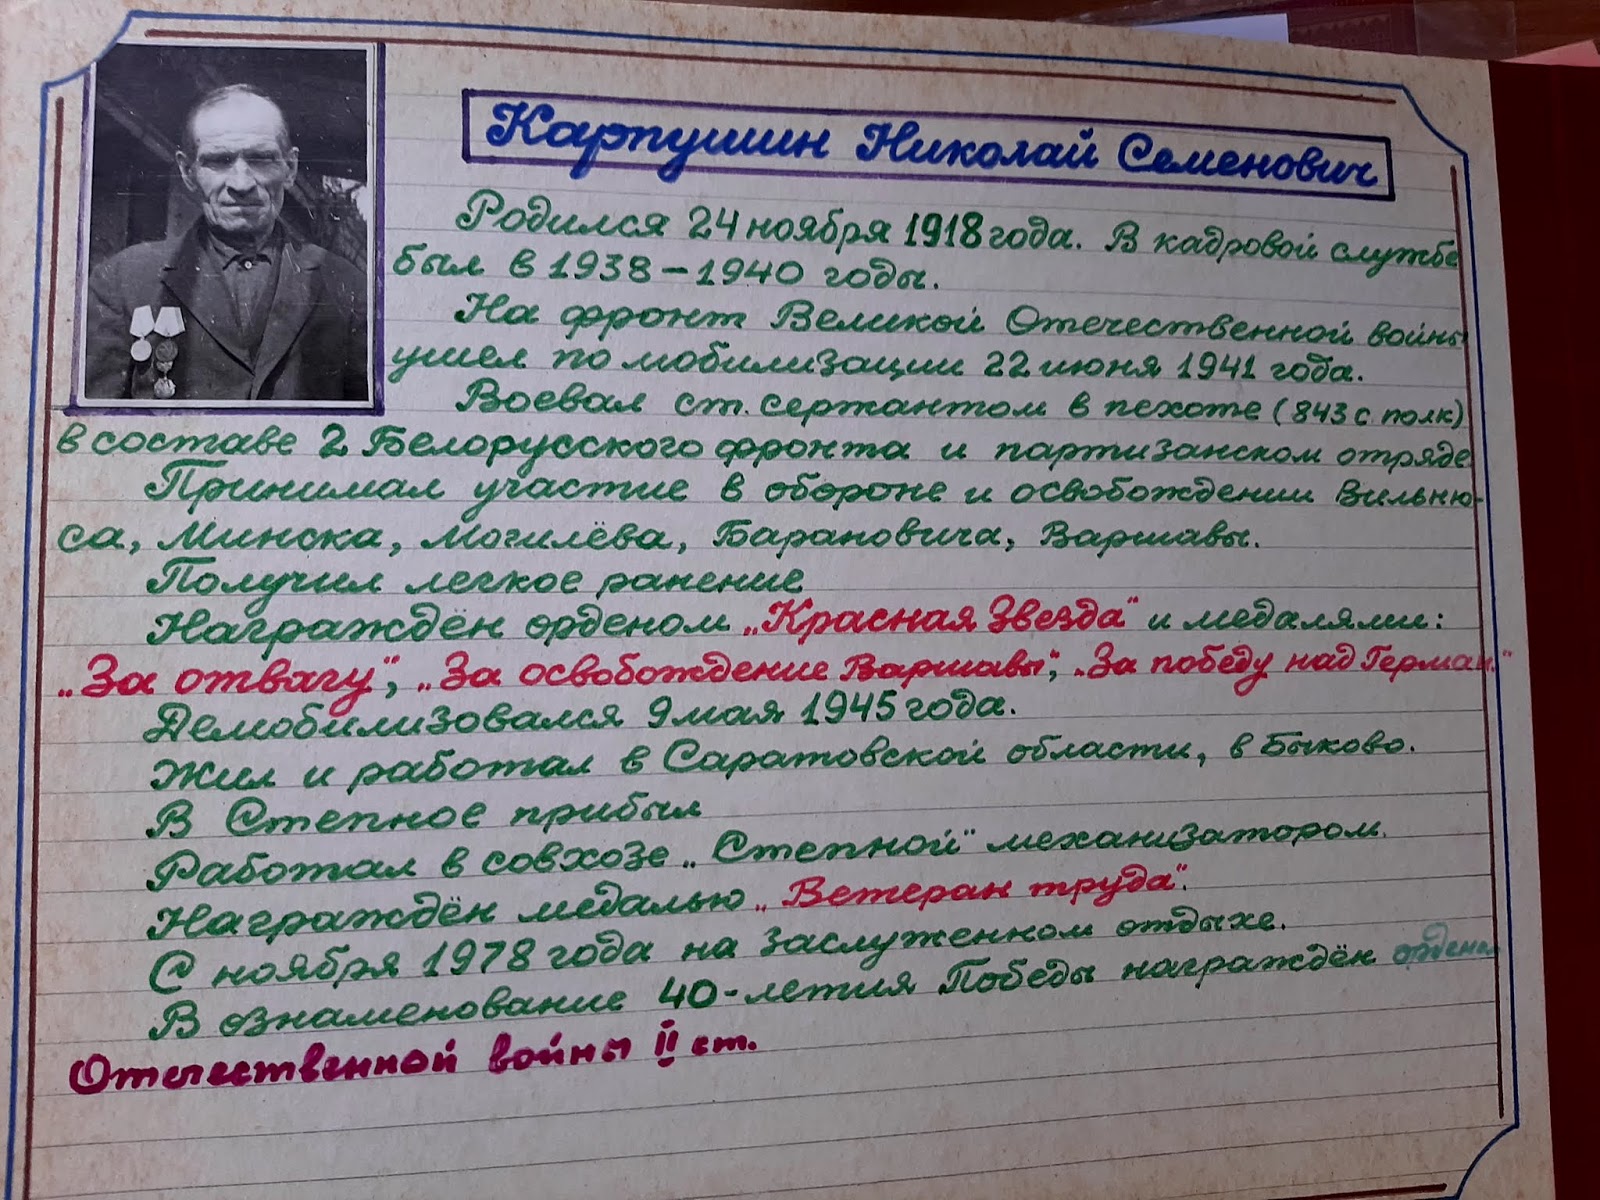 Карпушин Николай Семенович
Родился 24 ноября 1918 года. В кадровой службе
был в 1938 – 1940 годы.
На фронт Великой Отечественной войны
ушел по мобилизации 22 июня 1941 года.
Воевал ст. сержантом в пехоте (843 с. полк)
в составе 2 Белорусского фронта и партизанском отряде
Принимал участие в обороне и освобождении Вильню-
са, Минска, Могилёва, Барановича, Варшавы.
Получил легкое ранение
Награждён орденом „Красная Звезда" и медалями:
„За отвагу", „За освобождение Варшавы", „За победу над Герман."
Демобилизовался 9 мая 1945 года.
Жил и работал в Саратовской области, в Быково.
В Степное прибыл
Работал в совхозе „Степной" механизатором.
Награждён медалью „Ветеран труда".
С ноября 1978 года на заслуженном отдыхе.
В ознаменование 40-летия Победы награждён орденом
Отечественной войны II ст.